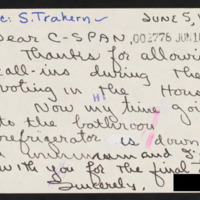 c: S. Trakern
JUNE 5, 1
Dear C-SPAN,
002776 JUN 1
Thanks for allowi
call-ins during the
voting in the Hous
Hi
Now my time goi
to the bathroom
refrigerator is down
a minimum and I
with you for the final
Sincerely,